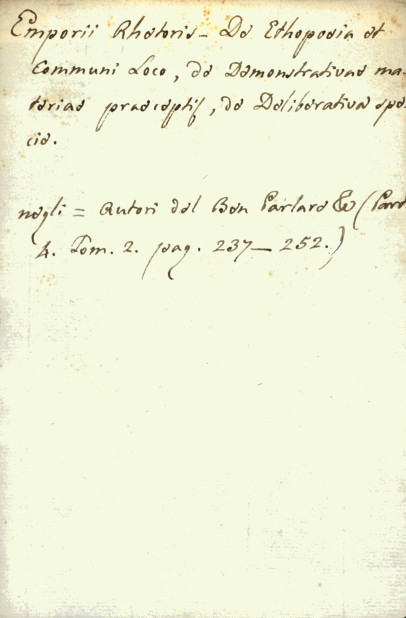 Emporii Rhetoris - De Ethopoeia et
Communi Loco, de Demonstrativae ma-
teriae praeceptis, de Deliberativa spe-
cie.
negli = Autori del Ben Parlare &c (Part
4. Tom. 2. pag. 237-252.)